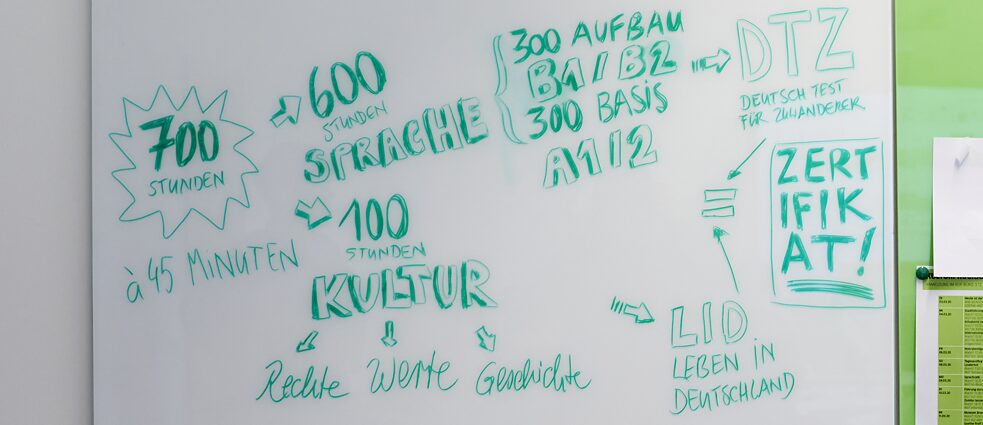 700
STUNDEN
à 45 MINUTEN
600
STUNDEN
SPRACHE
300 AUFBAU
B1/B2
300 BASIS
A1/2
DTZ
DEUTSCH TEST
FÜR ZUWANDERER
100
STUNDEN
KULTUR
Rechte Werte Geschichte
LID
LEBEN IN
DEUTSCHLAND
=
ZERT
IFIK
AT!